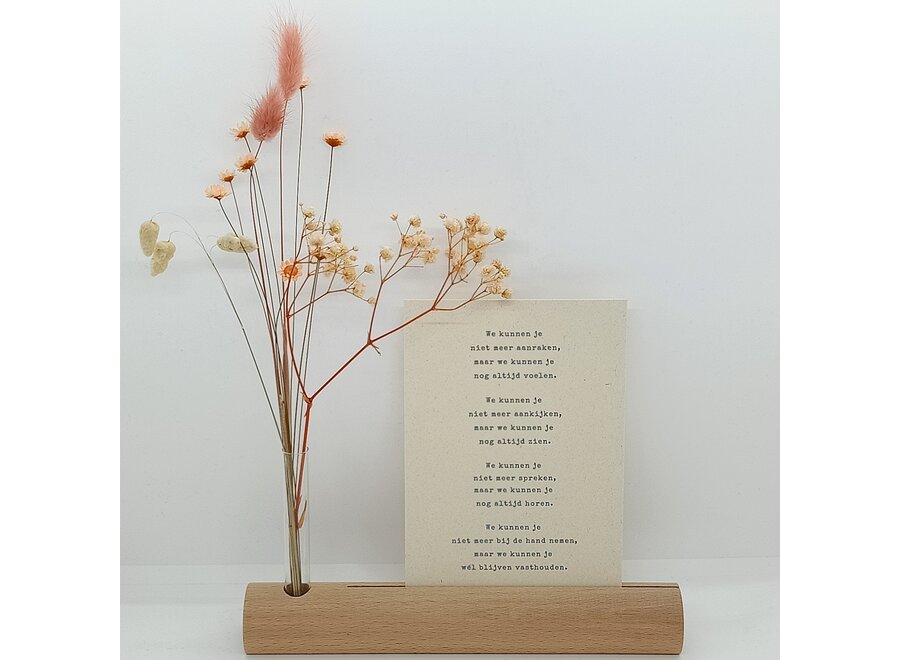 We kunnen je
niet meer aanraken,
maar we kunnen je
nog altijd voelen.
We kunnen je
niet meer aankijken,
maar we kunnen je
nog altijd zien.
We kunnen je
niet meer spreken,
maar we kunnen je
nog altijd horen.
We kunnen je
niet meer bij de hand nemen,
maar we kunnen je
wél blijven vasthouden.